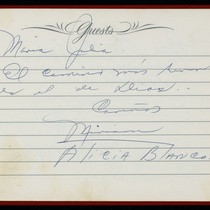 Guests
Maria Julia
El camino más
es el de Dios..
Cariños
Miriam
Alicia Blanco